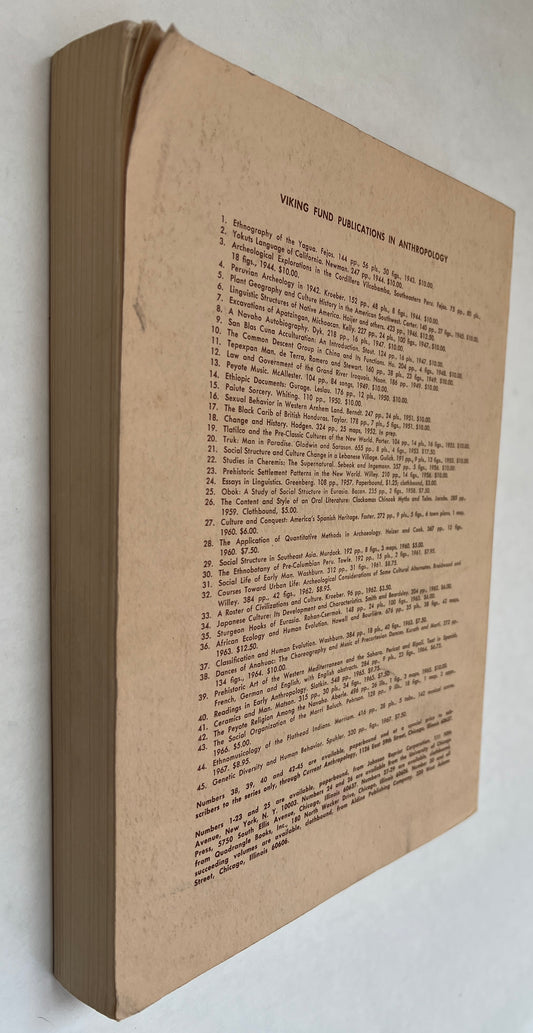 VIKING FUND PUBLICATIONS IN ANTHROPOLOGY
1. Ethnography of the Yagua. Fejos. 144 pp., 56 pls., 50 figs., 1943. $10.00.
2. Yokuts Language of California. Newman. 247 pp., 1944. $10.00.
3. Archeological Explorations in the Cordillera Vilcabamba, Southeastern Peru. Fejos. 75 pp., pls.,
18 figs., 1944. $10.00.
4. Peruvian Archeology in 1942. Kroeber. 152 pp., 48 pls., 8 figs., 1944. $10.00.
5. Plant Geography and Culture History in the American Southwest. Carter. 140 pp., 27 figs., 1945. $10.00.
6. Linguistic Structures of Native America. Hoijer and others. 423 pp., 1946. $12.50.
7. Excavations at Apatzingan, Michoacan. Kelly. 227 pp., 24 pls., 100 figs., 1947. $10.00.
8. A Navaho Autobiography. Dyk. 218 pp., 16 pls., 1947. $10.00.
9. San Blas Cuna Acculturation: An Introduction. Stout. 124 pp., 16 pls., 1947. $10.00.
10. The Common Descent Group in China and Its Functions. Hu. 204 pp., 4 figs., 1948. $10.00.
11. Tepexpan Man. de Terra, Romero and Stewart. 160 pp., 38 pls., 25 figs., 1949. $10.00.
12. Law and Government of the Grand River Iroquois. Noon. 186 pp., 1949. $10.00.
13. Peyote Music. McAllester. 104 pp., 84 songs, 1949. $10.00.
14. Ethiopic Documents: Gurage. Leslau. 176 pp., 12 pls., 1950. $10.00.
15. Paiute Sorcery. Whiting. 110 pp., 1950. $10.00.
16. Sexual Behavior in Western Arnhem Land. Berndt. 247 pp., 24 pls., 1951. $10.00.
17. The Black Carib of British Honduras. Taylor. 178 pp., 7 pls., 5 figs., 1951. $10.00.
18. Change and History. Hodgen. 324 pp., 25 maps, 1952. In prep.
19. Tlatilco and the Pre-Classic Cultures of the New World. Porter. 104 pp., 14 pls., 16 figs., 1953. $10.00.
20. Truk: Man in Paradise. Gladwin and Sarason. 655 pp., 8 pls., 4 figs., 1953. $17.50.
21. Social Structure and Culture Change in a Lebanese Village. Gulick. 191 pp., 9 pls., 13 figs., 1955. $10.00.
22. Studies in Cheremis: The Supernatural. Sebeok and Ingemann. 357 pp., 5 figs., 1956. $10.00.
23. Prehistoric Settlement Patterns in the New World. Willey. 210 pp., 14 figs., 1956. $10.00.
24. Essays in Linguistics. Greenberg. 108 pp., 1957. Paperbound, $1.25; clothbound, $3.00.
25. Obok: A Study of Social Structure in Eurasia. Bacon. 235 pp., 2 figs., 1958. $7.50.
26. The Content and Style of an Oral Literature: Clackamas Chinook Myths and Tales. Jacobs. 285 pp.,
1959. Clothbound, $5.00.
27. Culture and Conquest: America's Spanish Heritage. Foster. 272 pp., 9 pls., 5 figs., 6 town plans, 1 map,
1960. $6.00.
28. The Application of Quantitative Methods in Archaeology. Heizer and Cook. 367 pp., 12 figs.,
1960. $7.50.
29. Social Structure in Southeast Asia. Murdock. 192 pp., 8 figs., 3 maps, 1960. $5.00.
30. The Ethnobotany of Pre-Columbian Peru. Towle. 192 pp., 15 pls., 2 figs., 1961. $7.95.
31. Social Life of Early Man. Washburn. 312 pp., 31 figs., 1961. $8.75.
32. Courses Toward Urban Life: Archeological Considerations of Some Cultural Alternates. Braidwood and
Willey. 384 pp., 42 figs., 1962. $8.95.
33. A Roster of Civilizations and Culture. Kroeber. 96 pp., 1962. $3.50.
34. Japanese Culture: Its Development and Characteristics. Smith and Beardsley. 204 pp., 1962. $6.00.
35. Sturgeon Hooks of Eurasia. Rohan-Csermak. 148 pp., 24 pls., 100 figs., 1963. $6.00.
36. African Ecology and Human Evolution. Howell and Bourlière. 676 pp., 35 pls., 38 figs., 42 maps,
1963. $12.50.
37. Classification and Human Evolution. Washburn. 384 pp., 18 pls., 40 figs., 1963. $7.50.
38. Dances of Anáhuac: The Choreography and Music of Precortesian Dances. Kurath and Martí. 272 pp.,
134 figs., 1964. $10.00.
39. Prehistoric Art of the Western Mediterranean and the Sahara. Pericot and Ripoll. Text in Spanish,
French, German and English, with English abstracts. 284 pp., 9 pls., 23 figs., 1964. $6.75.
40. Readings in Early Anthropology. Slotkin. 548 pp., 1965. $9.75.
41. Ceramics and Man. Matson. 315 pp., 30 pls., 34 figs., 1965. $7.50.
42. The Peyote Religion Among the Navaho. Aberle. 496 pp., 26 ills., 1 fig., 3 maps, 1965. $10.00.
43. The Social Organization of the Marri Baluch. Pehrson. 128 pp., 9 ills., 18 figs., 1 map, 2 apps.,
1966. $5.00.
44. Ethnomusicology of the Flathead Indians. Merriam. 416 pp., 28 pls., 5 tabs., 142 musical scores,
1967. $8.95.
45. Genetic Diversity and Human Behavior. Spuhler. 320 pp., figs., 1967. $7.50.
Numbers 38, 39, 40 and 42-45 are available, paperbound and at a special price to sub-
scribers to the series only, through Current Anthropology, 1126 East 59th Street, Chicago, Illinois 60637.
Numbers 1-23 and 25 are available, paperbound, from Johnson Reprint Corporation, 111 Fifth
Avenue, New York, N. Y. 10003. Numbers 24 and 26 are available from the University of Chicago
Press, 5750 South Ellis Avenue, Chicago, Illinois 60637. Numbers 27-29 are available, clothbound,
from Quadrangle Books, Inc., 180 North Wacker Drive, Chicago, Illinois 60606. Number 30 and all
succeeding volumes are available, clothbound, from Aldine Publishing Company, 320 West Adams
Street, Chicago, Illinois 60606.